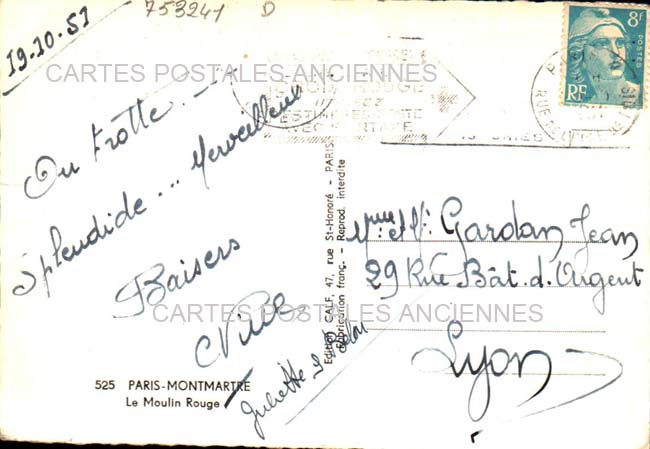 753241 D
19-10-51
CARTES POSTALES ANCIENNES
On trotte...
Splendide... Merveilleux
Baisers
Juliette
525 PARIS-MONTMARTRE
Le Moulin Rouge
Edition CALF, 47, rue St-Honoré - PARIS
Fabrication franç. - Reprod. interdite
8F
POSTES
RF
CROIX ROUGE
RUE
Mme et Mr Gardan Jean
29 Rue Bât. d'Argent
Lyon
CARTES POSTALES ANCIENNES